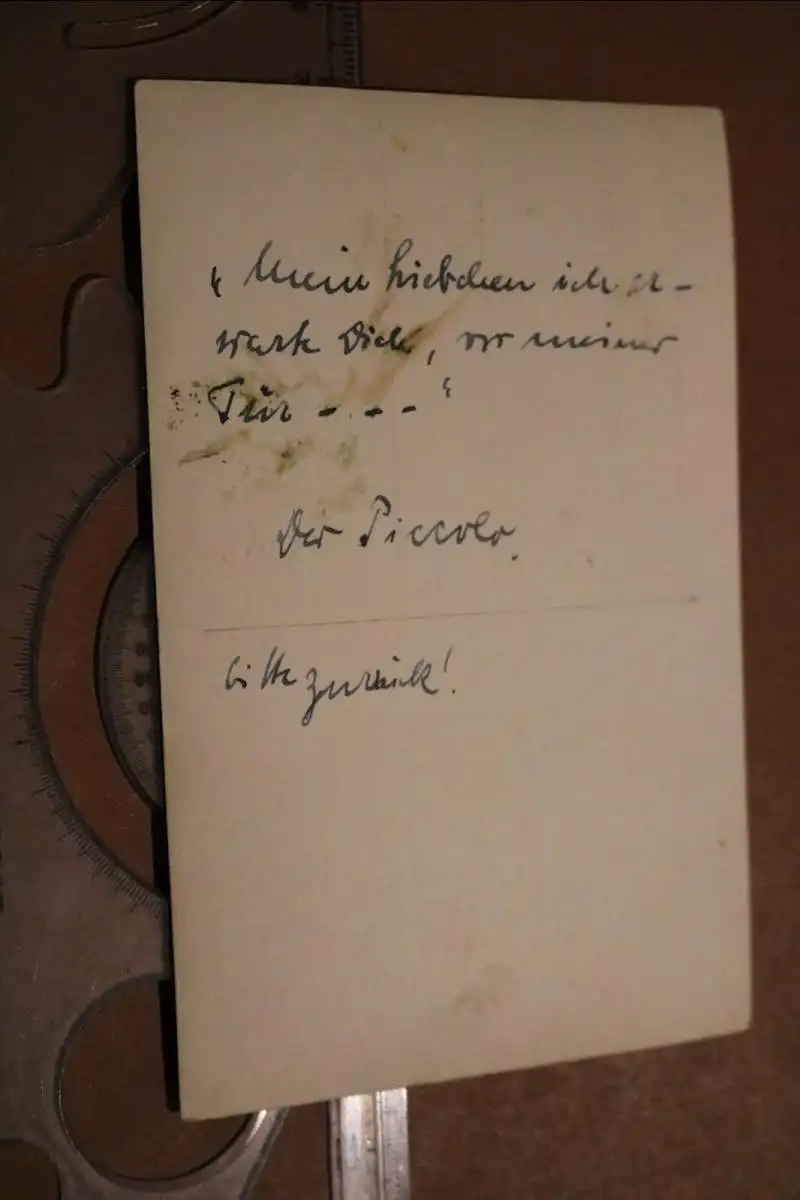 „Mein Liebchen ich er-
warte Dich, vor meiner
Tür - - - -“
Der Piccolo.
bitte zurück!